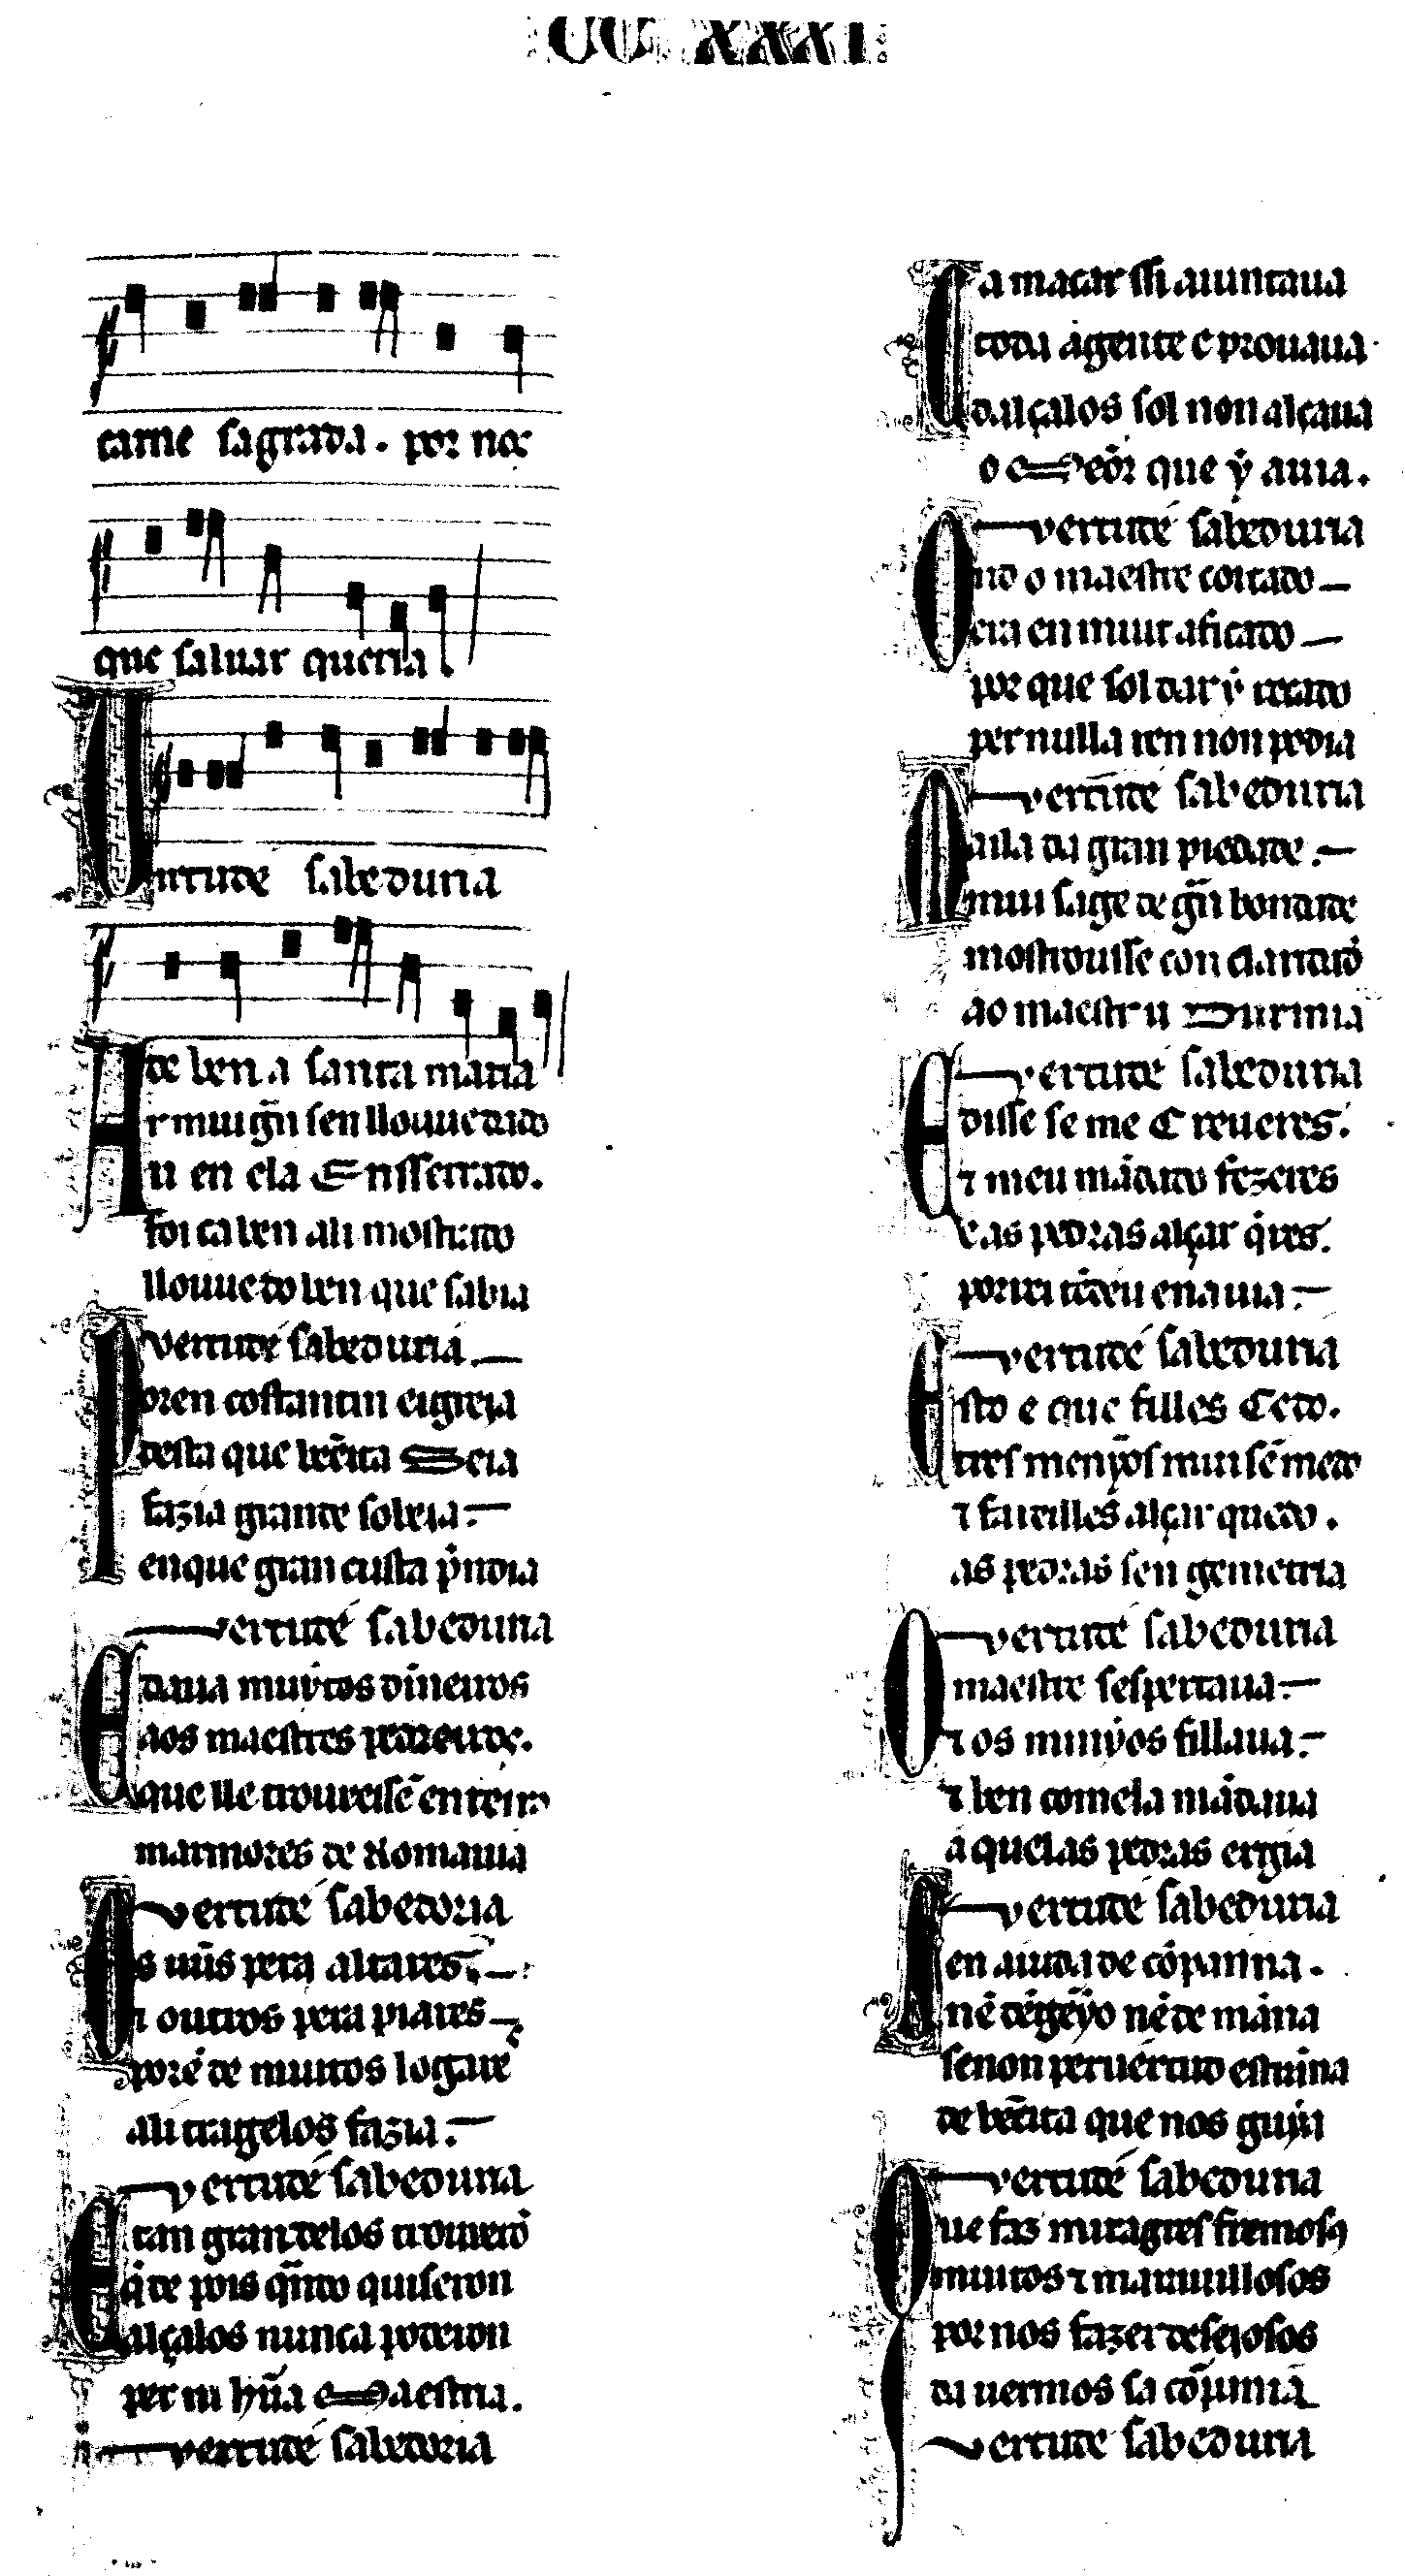 CC XXXI
carne sagrada. por nos
que saluar queria.
Uertude sabeduria
de ben a santa maria
r mui gñ sen llouue dado
Au en ela Ensserrado.
foi ca ben ali mostrado
llouue do ben que sabia
vertude sabeduria.
Poren costantin eigreja
desta que bẽeita Seia
fazia grande sobeja.
en que gran custa p̃ndia
vertude sabeduria
E daua muytos dineiros
aos maestres pedreiros.
que lle trouxessẽ enteiros
marmores de Romania
vertude sabedoria
Os ũus pera altares.
τ outros pera piares
porẽ de muitos logares
ali tragelos fazia.
vertude sabeduria
E tan grandelos trouxerõ
q̇ de pois q̃nto quiseron
alçalos nunca poderon
per nĩ hũa Maestria.
vertude sabedoria
Ca macar ssi aiuntaua
toda agente e prouaua.
dalçalos sol non alçaua
o Mẽor que ẏ auia.
vertude sabeduria
Ond o maestre coitado
era en mui aficado
por que sol dar ẏ recado
per nulla ren non podia
vertude sabeduria
Mai la da gran piedade.
mui sage de gñ bondade
mostrousse con claridade
ao maestr u Durmia
vertude sabeduria
E disse se me Creueres.
τ meu mãdado fezeres
e as pedras alçar q̇res.
porrei
vertude sabeduria
Esto e que filles Cedo.
tres menỹos mui sẽ medo
τ fareilles alçar quedo.
as pedras sen gemetria
vertude sabeduria
O maestre sespertaua.
τ os minỹos fillaua.
τ ben comela mãdaua
aquelas pedras ergia
vertude sabeduria
A en aiuda de cõpanna.
nẽ dẽgẽyo nẽ de mãna
senon per uertud estrãina
de bẽeita que nos guya
vertude sabeduria
Que faz miragres fremosos
muitos τ marauillosos
por nos fazer desejosos
da uermos sa cõpania
Vertude sabeduria